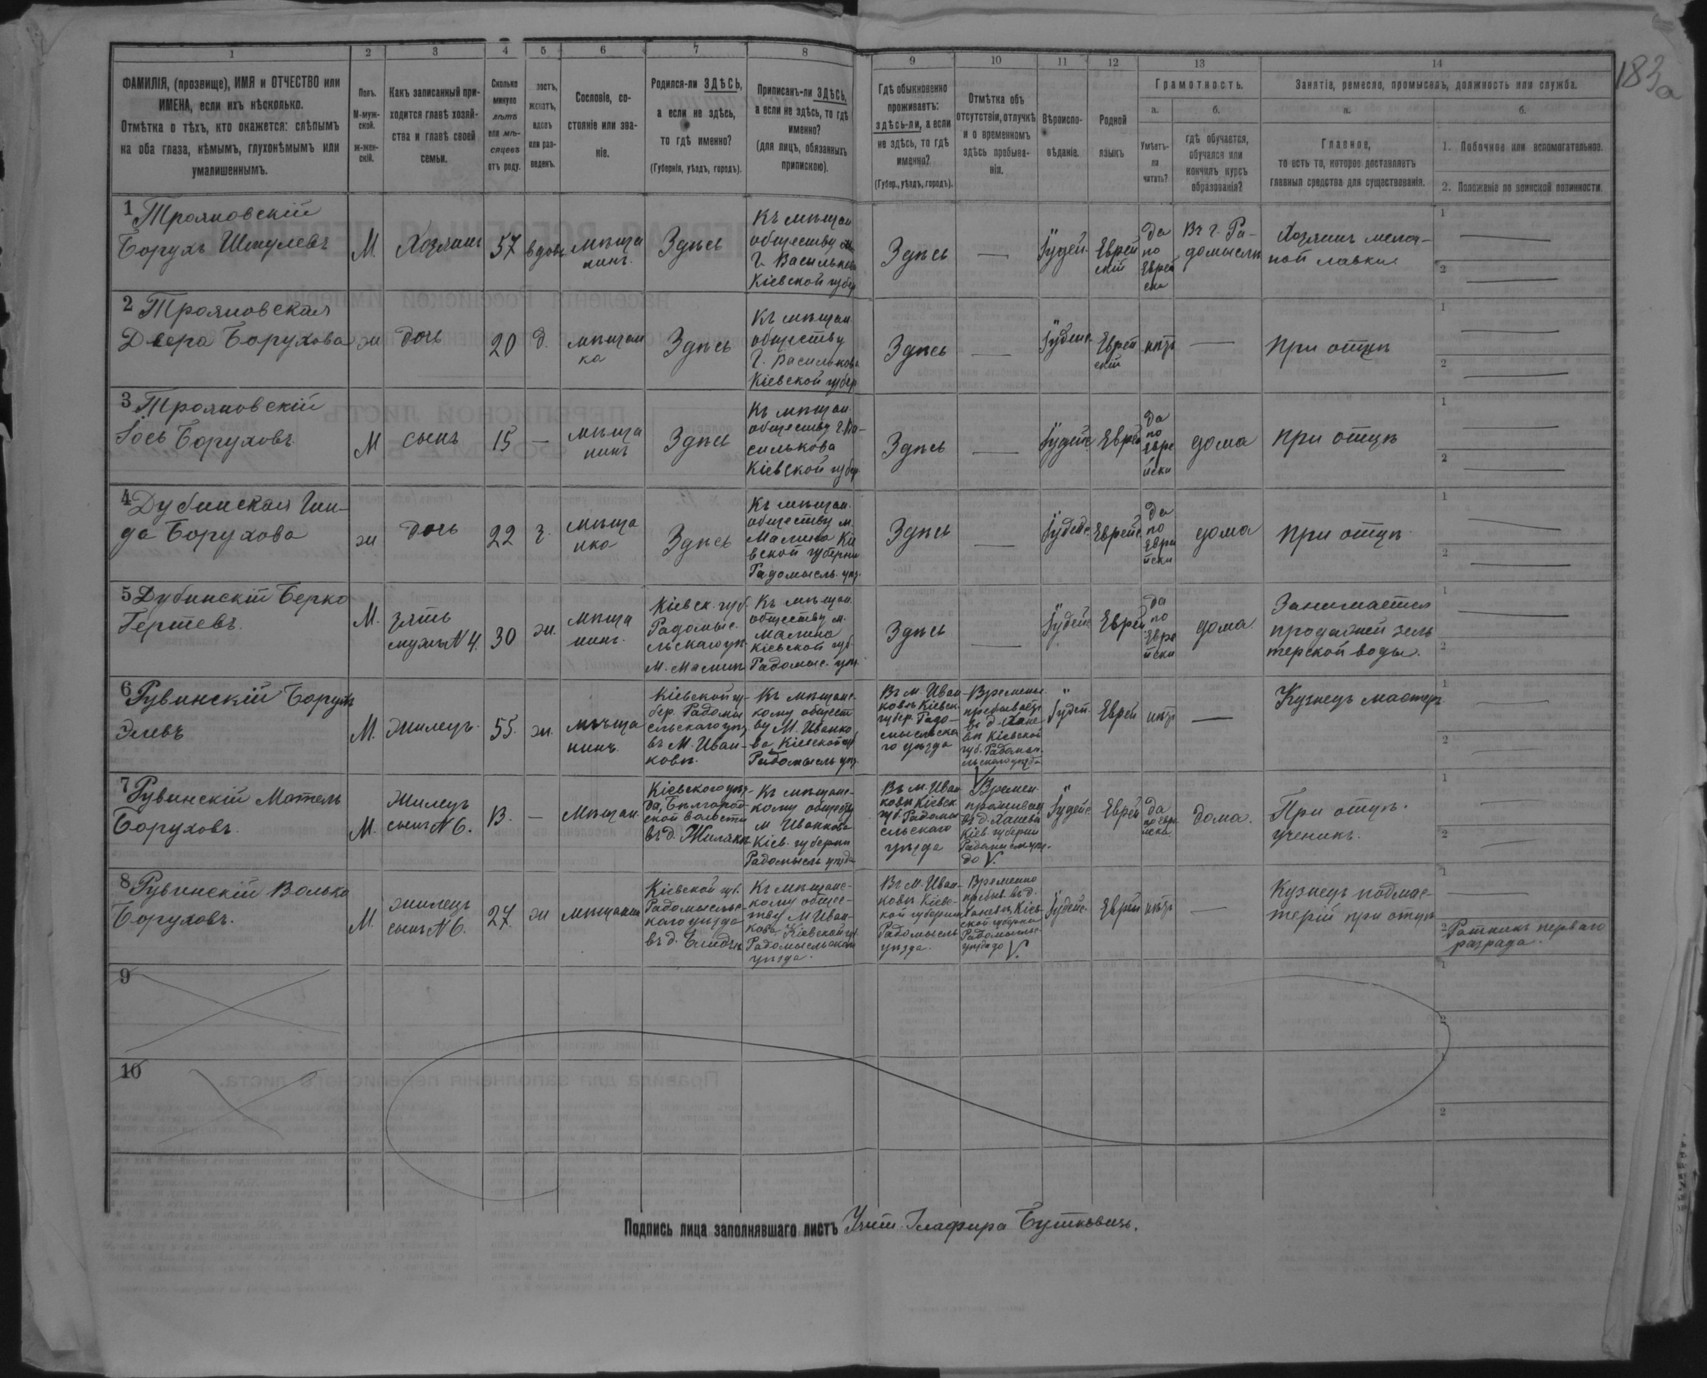 183а
1 2 3 4 5 6 7 8 9 10 11 12 13 14
ФАМИЛІЯ, (прозвище), ИМЯ и ОТЧЕСТВО или
ИМЕНА, если ихъ нѣсколько.
Отмѣтка о тѣхъ, кто окажется: слѣпымъ
на оба глаза, нѣмымъ, глухонѣмымъ или
умалишеннымъ.
Полъ.
М-муж-
ской.
ж-жен-
скій.
Какъ записанный при-
ходится главѣ хозяй-
ства и главѣ своей
семьи.
Сколько
минуло
лѣтъ
или мѣ-
сяцевъ
отъ роду.
лостъ,
женатъ,
вдовъ
или раз-
веденъ.
Сословіе, со-
стояніе или зва-
ніе.
Родился-ли ЗДѢСЬ,
а если не здѣсь,
то гдѣ именно?
(Губернія, уѣздъ, городъ).
Приписанъ-ли ЗДѢСЬ,
а если не здѣсь, то гдѣ
именно?
(для лицъ, обязанныхъ
припиской).
Гдѣ обыкновенно
проживаетъ:
здѣсь-ли, а если
не здѣсь, то гдѣ
именно?
(Губер., уѣздъ, городъ).
Отмѣтка объ
отсутствіи, отлучкѣ
и о временномъ
здѣсь пребыва-
ніи.
Вѣроиспо-
вѣданіе.
Родной
языкъ
Грамотность.
а.
Умѣетъ-
ли
читать?
б.
гдѣ обучается,
обучался или
кончилъ курсъ
образованія?
Занятія, ремесло, промыселъ, должность или служба.
а.
Главное,
то есть то, которое доставляетъ
главныя средства для существованія.
б.
1. Побочное или вспомогательное.
2. Положеніе по воинской повинности.
1 Трояновскій
Борухъ Шмулевъ
М
Хозяинъ
57
вдовъ
мѣща
нинъ.
Здѣсь
Къ мѣщан
обществу
г. Василькова
Кіевской губер
Здѣсь
—
Іудей
Еврей
скій
да
по
Еврей
ски
Въ г. Ра-
домыслѣ
Хозяинъ мелоч-
ной лавки
1 —
2 —
2 Трояновская
Двера Борухова
ж
дочь
20
д.
мѣщан
ка
Здѣсь
Къ мѣщан
обществу
г. Василькова
Кіевской губер
Здѣсь
—
Іудейс
Еврей
скій
нѣтъ
—
при отцѣ
1 —
2 —
3 Трояновскій
Іось Боруховъ
М
сынъ
15
—
мѣща
нинъ
Здѣсь
Къ мѣщан
обществу г. Ва-
силькова
Кіевской губер
Здѣсь
—
Іудейс
Еврей
да
по
Евре
йски
дома
при отцѣ
1 —
2 —
4 Дубинская Гин-
да Борухова
ж
дочь
22
з.
мѣща
нка
Здѣсь
Къ мѣщан.
обществу м.
Малина Кіе
вской губерніи
Радомысль. уѣз.
Здѣсь
—
Іудейс
Еврейс
да
по
Евре
йски
дома
при отцѣ
1 —
2 —
5 Дубинскій Берко
Гершевъ.
М.
зять
мужъ N 4.
30
ж.
мѣща
нинъ.
Кіевск. губ.
Радомыс.
льскаго уѣз
м. Малинѣ
Къ мѣщан.
обществу м.
Малина
Кіевской губ
Радомыс. уѣз
Здѣсь
—
Іудейс
Еврей
да
по
Евре
йски
дома
Занимается
продажей зель
терской воды.
1 —
2
6 Рувинскій Борухъ
Элевъ
М.
жилецъ.
55.
ж.
мѣща
нинъ.
Кіевской гу-
бер. Радомы
сльскаго уѣз
въ М. Иван-
ковѣ.
Къ мѣщанс-
кому общест
ву М. Иванко
ва Кіевской губ
Радомысль уѣз.
Въ м. Иван
ковѣ Кіевск.
губер Радо-
мысльска
го уѣзда
Временно
пребываетъ
въ д. Хане-
вѣ Кіевской
губ. Радомы
сльскаго уѣзда
V
Іудей.
Еврей
нѣтъ
—
Кузнецъ мастеръ
1 —
2 —
7 Рувинскій Мотель
Боруховъ.
М.
Жилецъ
сынъ N 6.
13.
—
Мѣщан.
Кіевскаго уѣз-
да, Бѣлгород-
ской волости
въ д.
Къ мѣщанс-
кому обществу
м Иванкова
Кіев. губерніи
Радомысль уѣзда
Въ м. Иван
ковѣ Кіевск
губ. Радомы
сльскаго
уѣзда
Времен.
проживает
въ д. Ханевѣ
Кіев губерніи
V.
Іудейс
Еврей
да
по евре
йски
дома.
При отцѣ.
ученикъ.
1 —
2 —
8 Рувинскій Волько
Боруховъ.
М.
жилецъ
сынъ N 6.
27.
ж
мѣщанин
Кіевской губ.
Радомысльс-
каго уѣзда
въ д.
Къ мѣщанс-
кому общес-
тву М Иван-
кова Кіевской губ
Радомысльскаго
уѣзда.
Въ М. Иван-
ковѣ Кіевс-
кой губерніи
Радомысль
уѣзда.
Временно
пребыв. въ д.
Ханевѣ, Кіев-
ской губерніи
Радомысль-
V.
Іудейс.
Еврей
нѣтъ
—
Кузнецъ подмас-
терій при отцѣ
1 —
2 Ратникъ перваго
разряда.
9
1
2
10
2
Подпись лица заполнявшаго листъ Учит. Глафира Буткевичъ.